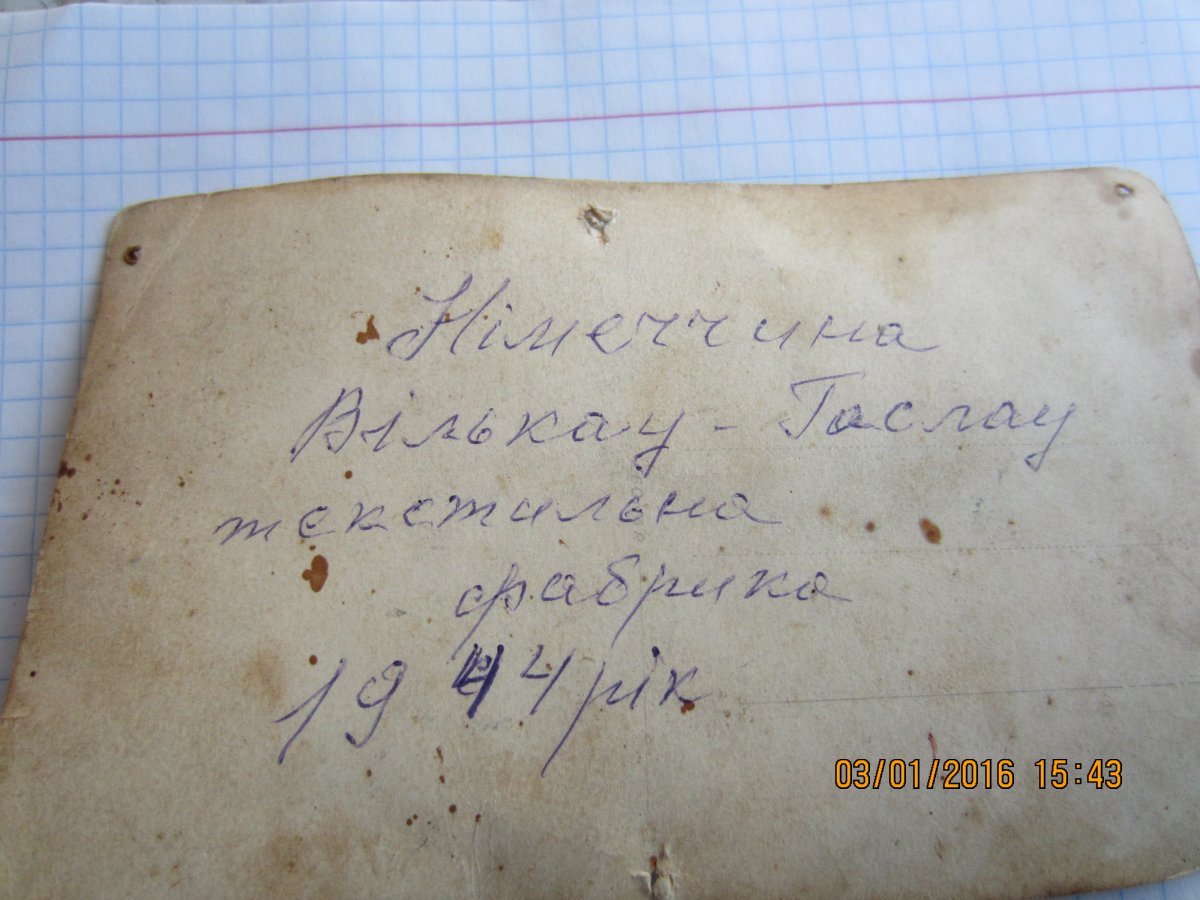 Німеччина
Вількау - Гаслау
текстильна
фабрика
1944 рік
03/01/2016 15:43